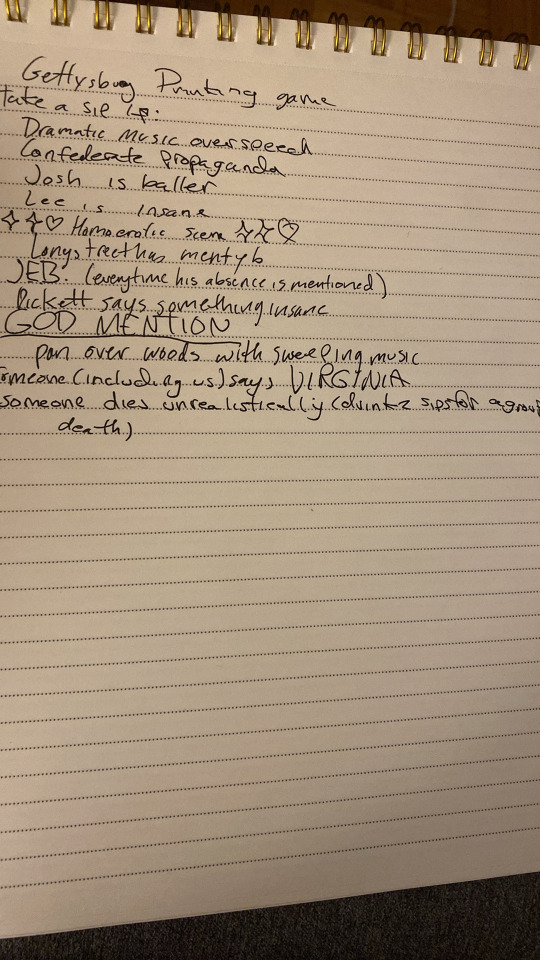 Gettysburg Drinking game
take a sip if:
Dramatic music over speech
Confederate Propaganda
Josh is baller
Lee is insane
✧✧♡ Homoerotic scene ✧✧♡
Longstreet has menty b
JEB. (everytime his absence is mentioned)
Pickett says something insane
GOD MENTION
pan over woods with sweeping music
omeone (including us) says VIRGINIA
someone dies unrealistically (drink 2 sips for a group
death)